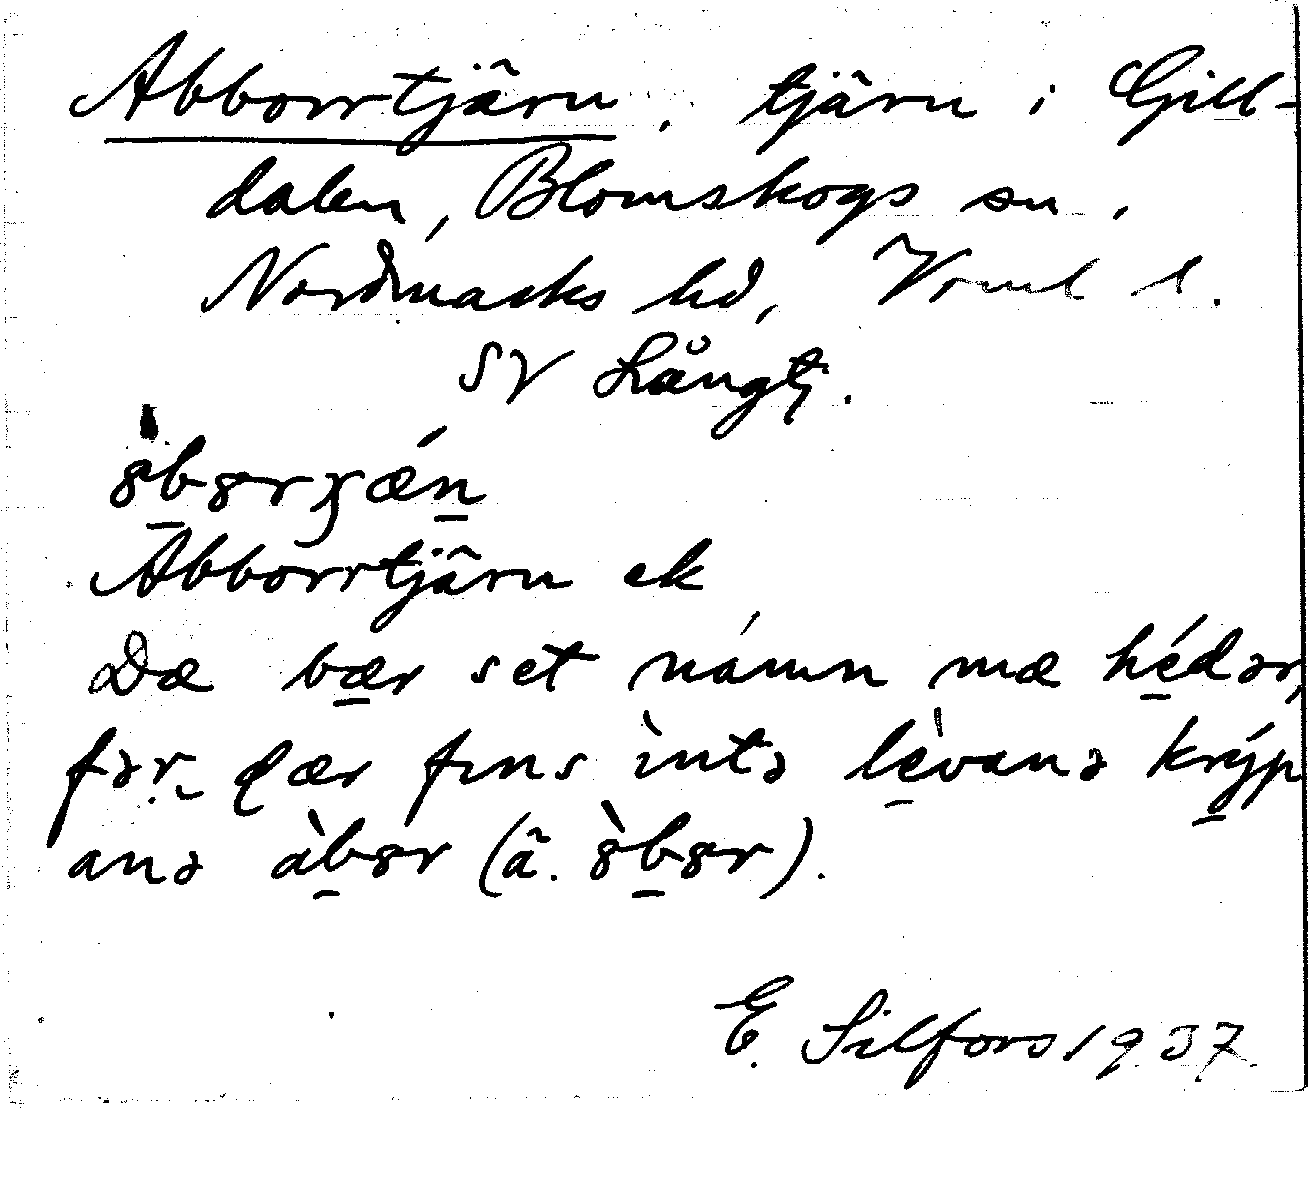 Abborrtjärn, tjärn i Gill-
dalen, Blomskogs sn,
Nordmarks hd, Vrml l.
SV Långtj.
Abborrtjärn ek
Dæ bær set námn mæ hédər,
fər dær fıns ìntə lèvanə krýp
anə àbɞr (ä. ɞ̀bɞr).
E. Silfors 1937